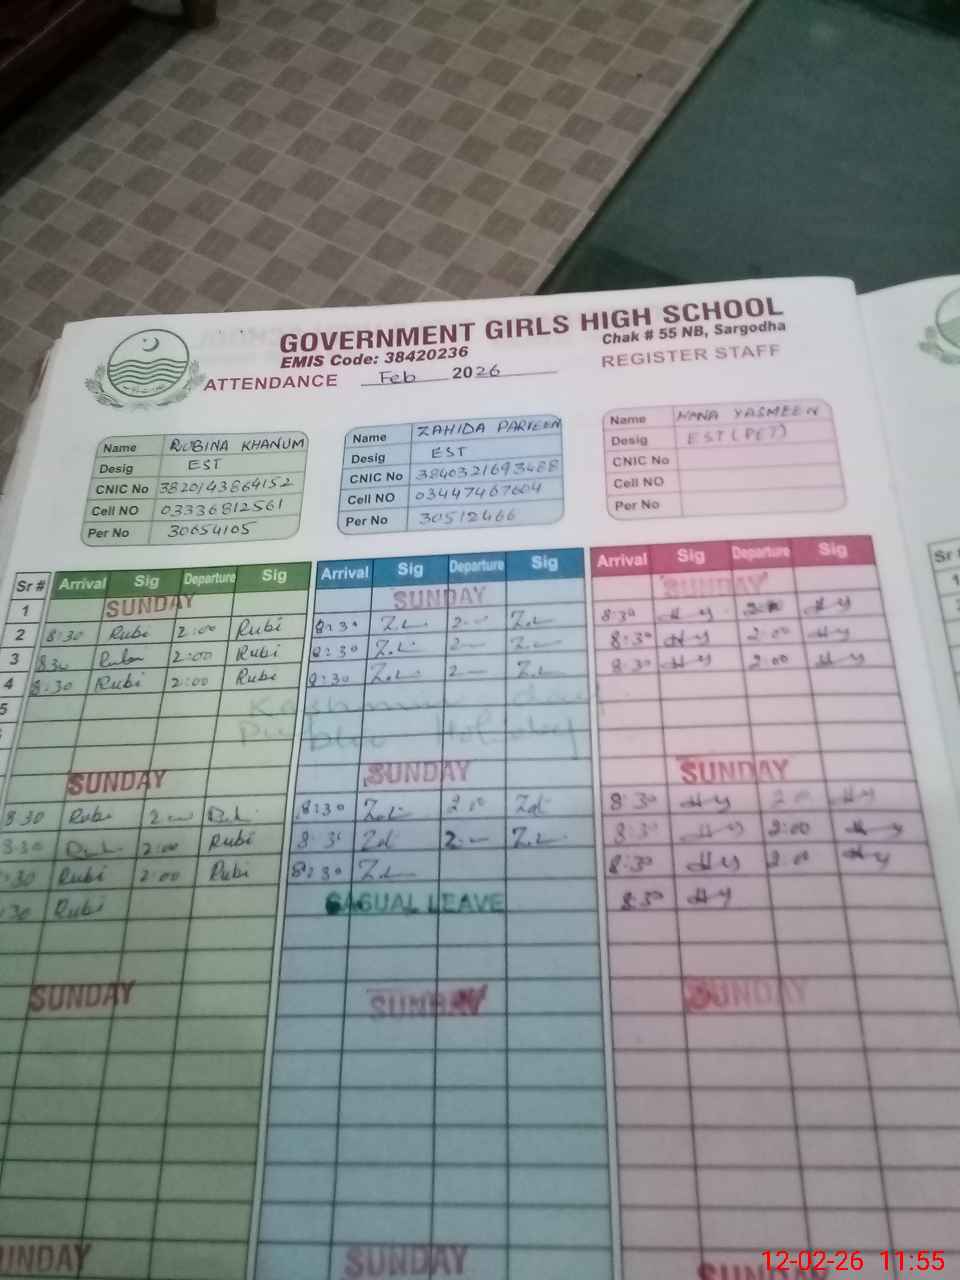 GOVERNMENT GIRLS HIGH SCHOOL
EMIS Code: 38420236 Chak # 55 NB, Sargodha
ATTENDANCE Feb 2026 REGISTER STAFF
Name RUBINA KHANUM
Desig EST
CNIC No 3820143864152
Cell NO 03336812561
Per No 30654105
Name ZAHIDA PARVEEN
Desig EST
CNIC No 3840321693488
Cell NO 03447467604
Per No 30512466
Name YASMEEN
Desig EST (PET)
CNIC No
Cell NO
Per No
Sr # Arrival Sig Departure Sig Arrival Sig Departure Sig Arrival Sig Departure Sig Sr
1 SUNDAY SUNDAY SUNDAY
2 8:30 Rubi 2:00 Rubi 8:30 Z.L 2 Z.L 8:30 Hy Hy
3 830 2:00 Rubi 8:30 Z.L 2 Z.L 8:30 Hy 2:00 Hy
4 8:30 Rubi 2:00 Rubi 8:30 Z.L 2 Z.L 8:30 Hy 2:00 Hy
5 Kashmir day
Public Holiday
SUNDAY SUNDAY SUNDAY
8 30 Rubi 2 8:30 2 8:30 Hy Hy
2:00 Rubi 8:3 2 8:30 Hy 2:00
30 Rubi 2:00 Rubi 8:30 Z.L 8:30 Hy Hy
30 Rubi CASUAL LEAVE 8:30 Hy
SUNDAY SUNDAY SUNDAY
SUNDAY SUNDAY
12-02-26 11:55